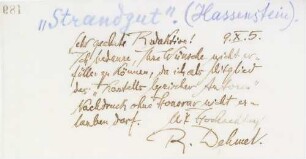 "Strandgut". (Hassenstein)
Sehr geehrte Redaktion! 9.X.5.
Ich bedaure, Ihre Wünsche nicht er-
füllen zu können, da ich als Mitglied
des "Kartells lyrischer Autoren"
Nachdruck ohne Honorar nicht er-
lauben darf.
R. Dehmel.